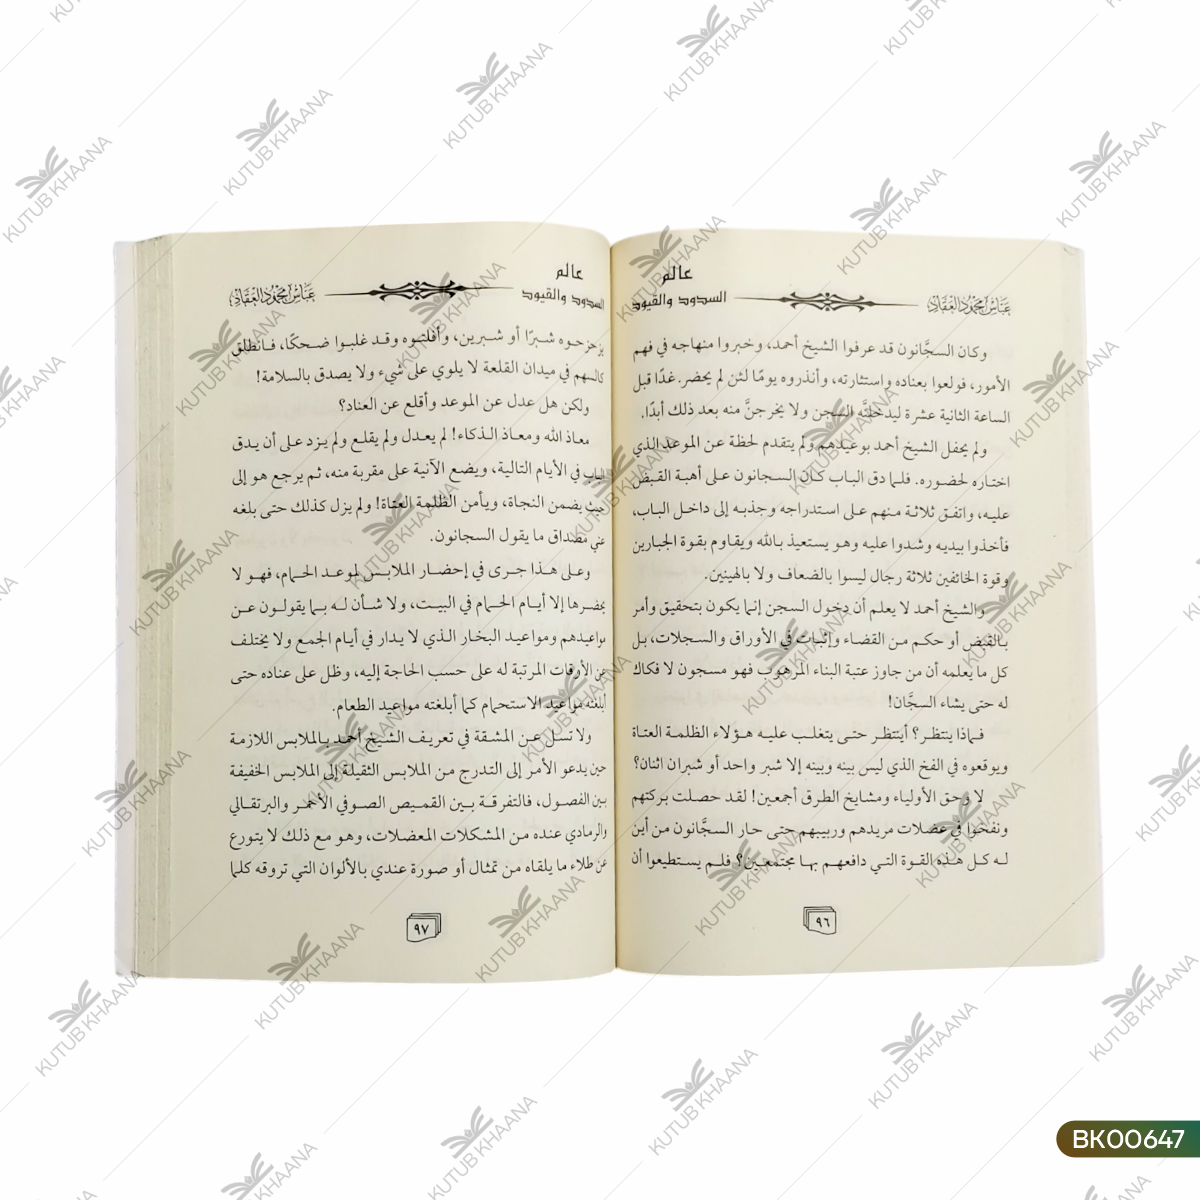 عالم
السدود والقيود
عباس محمود العقاد
وكان السجَّانون قد عرفوا الشيخ أحمد، وخبروا منهاجه في فهم
الأمور، فولعوا بعناده واستثارته، وأنذروه يومًا لئن لم يحضر. غدًا قبل
الساعة الثانية عشرة ليدخلنَّه السجن ولا يخرجنَّ منه بعد ذلك أبدًا.
ولم يحفل الشيخ أحمد بوعيدهم ولم يتقدم لحظة عن الموعد الذي
اختاره لحضوره. فلما دق الباب كان السجانون على أهبة القبض
عليه، واتفق ثلاثة منهم على استدراجه وجذبه إلى داخل الباب،
فأخذوا بيديه وشدوا عليه وهو يستعيذ بالله ويقاوم بقوة الجبارين
وقوة الخائفين ثلاثة رجال ليسوا بالضعاف ولا بالهينين.
والشيخ أحمد لا يعلم أن دخول السجن إنما يكون بتحقيق وأمر
بالقبض أو حكم من القضاء وإثبات في الأوراق والسجلات، بل
كل ما يعلمه أن من جاوز عتبة البناء المرهوب فهو مسجون لا فكاك
له حتى يشاء السجَّان!
فماذا ينتظر؟ أينتظر حتى يتغلب عليه هؤلاء الظلمة العتاة
ويوقعوه في الفخ الذي ليس بينه وبينه إلا شبر واحد أو شبران اثنان؟
لا وحق الأولياء ومشايخ الطرق أجمعين! لقد حصلت بركتهم
ونفخوا في عضلات مريدهم وربيبهم حتى حار السجَّانون من أين
له كل هذه القوة التي دافعهم بها مجتمعين؟ فلم يستطيعوا أن
٩٦
عالم
السدود والقيود
عباس محمود العقاد
يزحزحوه شبرًا أو شبرين، وأفلتوه وقد غلبوا ضحكًا، فانطلق
كالسهم في ميدان القلعة لا يلوي على شيء ولا يصدق بالسلامة!
ولكن هل عدل عن الموعد وأقلع عن العناد؟
معاذ الله ومعاذ الذكاء! لم يعدل ولم يقلع ولم يزد على أن يدق
الباب في الأيام التالية، ويضع الآنية على مقربة منه، ثم يرجع هو إلى
حيث يضمن النجاة، ويأمن الظلمة العتاة! ولم يزل كذلك حتى بلغه
عني مصداق ما يقول السجانون.
وعلى هذا جرى في إحضار الملابس لموعد الحمام، فهو لا
يحضرها إلا أيام الحمام في البيت، ولا شأن له بما يقولون عن
مواعيدهم ومواعيد البخار الذي لا يدار في أيام الجمع ولا يختلف
عن الأوقات المرتبة له على حسب الحاجة إليه، وظل على عناده حتى
أبلغته مواعيد الاستحمام كما أبلغته مواعيد الطعام.
ولا تسل عن المشقة في تعريف الشيخ أحمد بالملابس اللازمة
حين يدعو الأمر إلى التدرج من الملابس الثقيلة إلى الملابس الخفيفة
بين الفصول، فالتفرقة بين القميص الصوفي الأحمر والبرتقالي
والرمادي عنده من المشكلات المعضلات، وهو مع ذلك لا يتورع
عن طلاء ما يلقاه من تمثال أو صورة عندي بالألوان التي تروقه كلما
٩٧
KUTUB KHAANA
BK00647